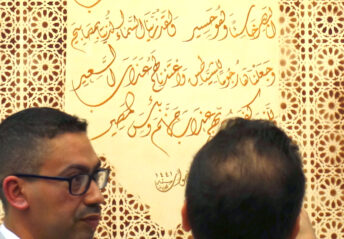 البصر خاسئا وهو حسير ولقد زينا السماء الدنيا بمصابيح
وجعلناها رجوما للشياطين وأعتدنا لهم عذاب السعير
وللذين كفروا بربهم عذاب جهنم وبئس المصير